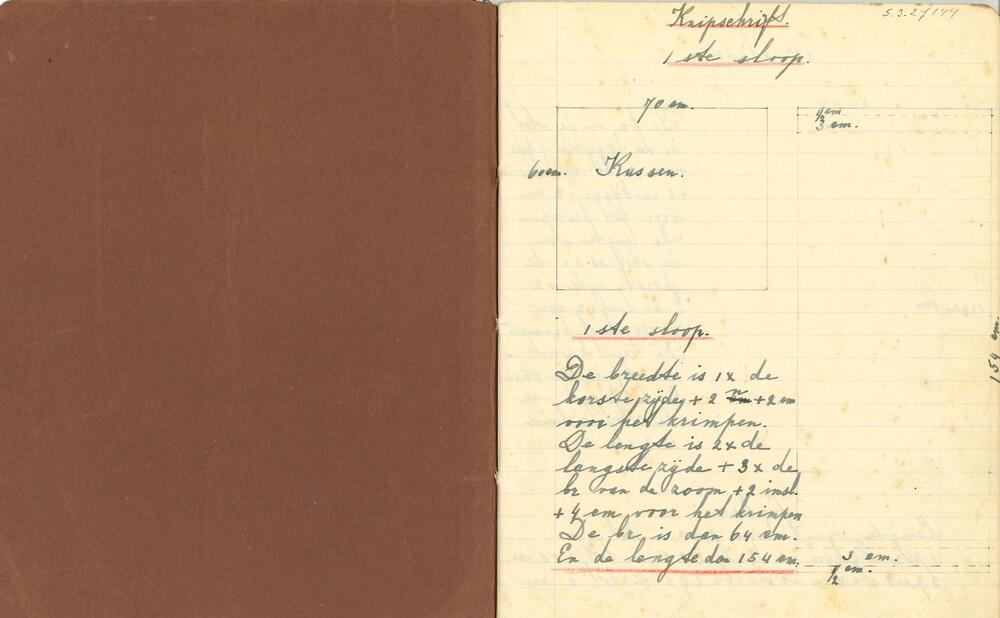 5.3.27/144
Knipschrift.
1 ste sloop.
70 cm.
½ cm
3 cm.
60 cm. Kussen.
154 cm.
1 ste sloop.
De breedte is 1x de
korste zijde + 2 + 2 cm
voor het krimpen.
De lengte is 2x de
langste zijde + 3x de
br van de zoom + 2 insl.
+ 4 cm voor het krimpen
De br. is dan 64 cm.
En de lengte dan 154 cm.
3 cm.
½ cm.